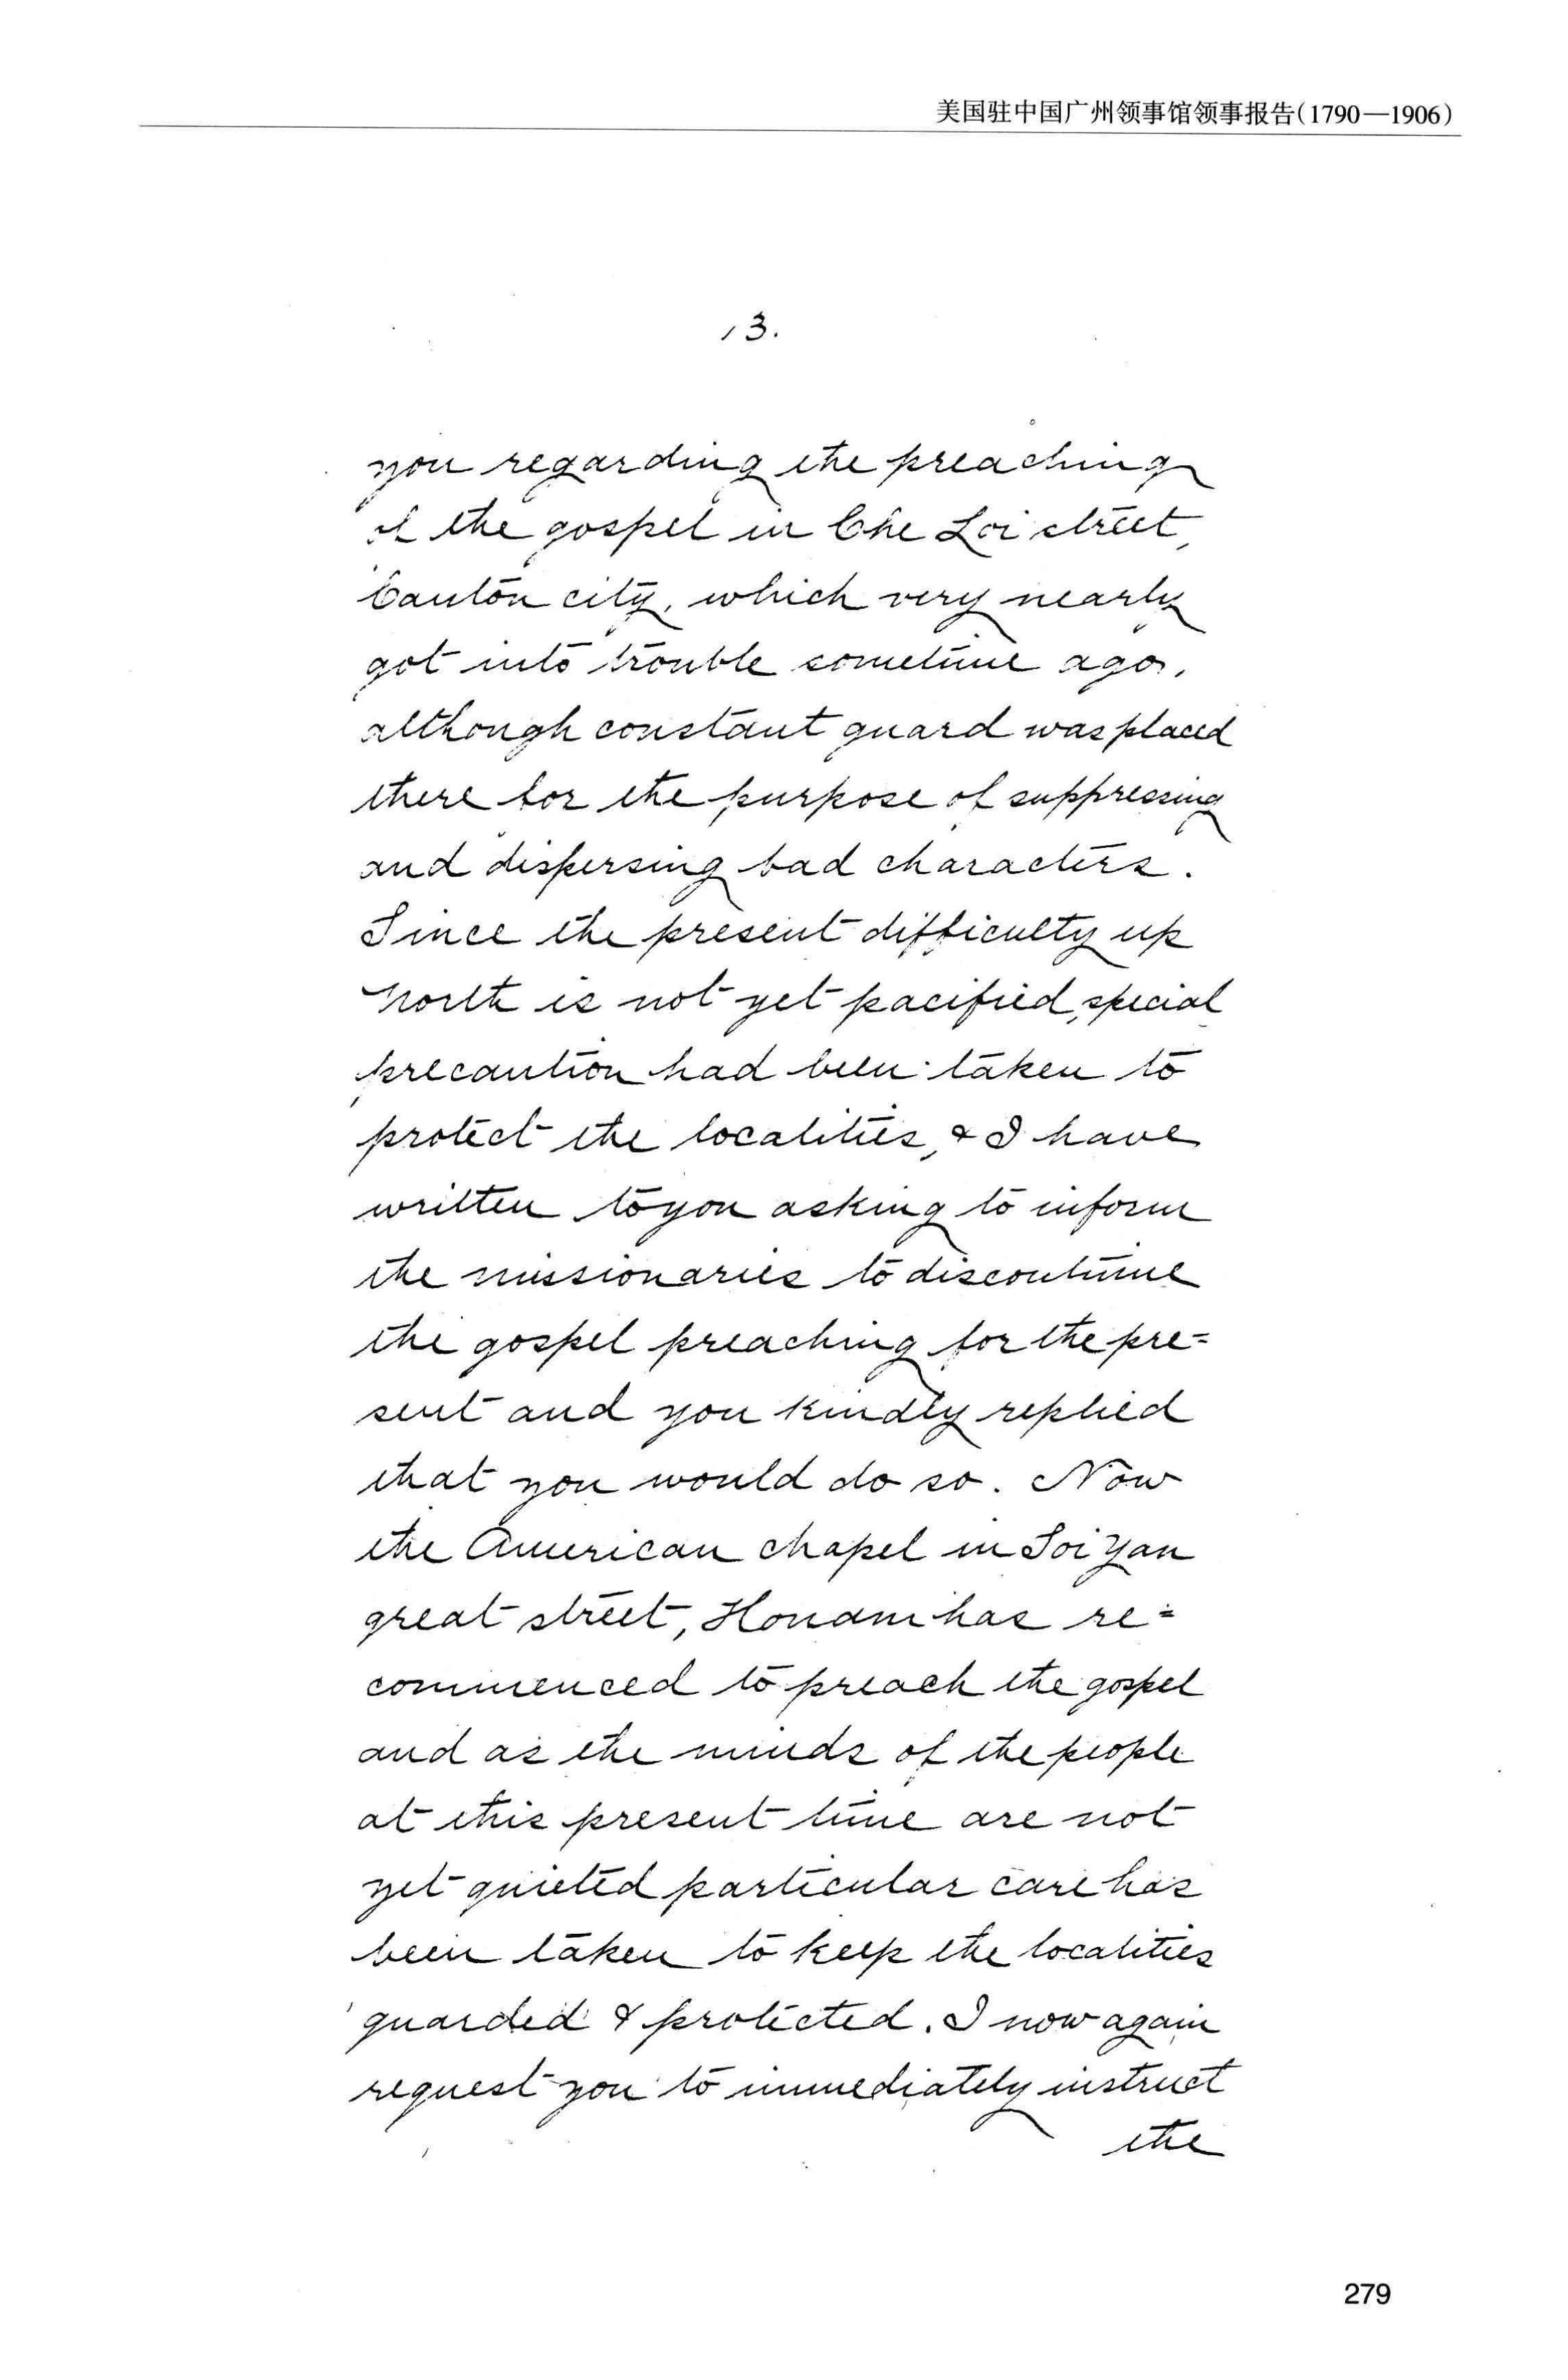 美国驻中国广州领事馆领事报告(1790—1906)
13.
you regarding the preaching
of the gospel in Che Loi street,
Canton city, which very nearly
got into trouble sometime ago,
although constant guard was placed
there for the purpose of suppressing
and dispersing bad characters.
Since the present difficulty up
North is not yet pacified, special
precaution had been taken to
protect the localities, & I have
written to you asking to inform
the missionaries to discontinue
the gospel preaching for the pre=
sent and you kindly replied
that you would do so. Now
the American chapel in Soi Yan
great street, Honam has re=
commenced to preach the gospel
and as the minds of the people
at this present time are not
yet quieted particular care has
been taken to keep the localities
guarded & protected. I now again
request you to immediately instruct
the
279